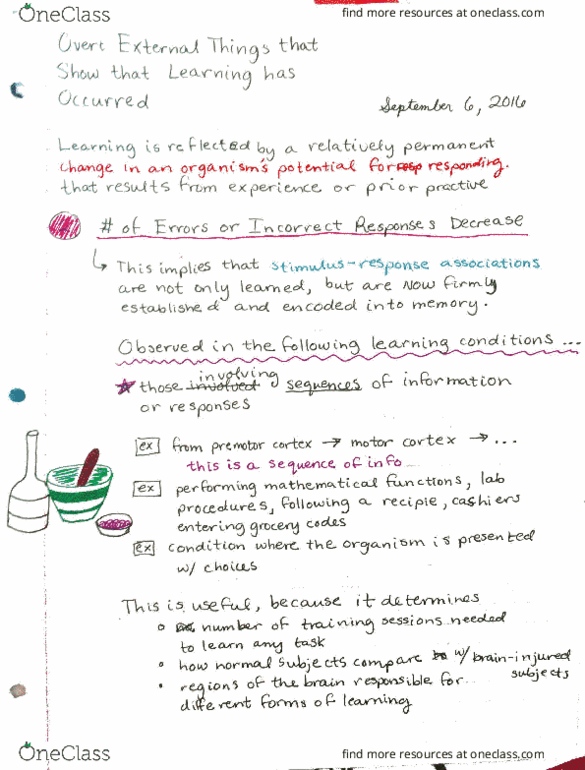 OneClass
find more resources at oneclass.com
Overt External Things that
Show that Learning has
Occurred
September 6, 2016
Learning is reflected by a relatively permanent
change in an organism's potential for resp responding.
that results from experience or prior practive
# of Errors or Incorrect Responses Decrease
↳ This implies that stimulus-response associations
are not only learned, but are now firmly
established and encoded into memory.
Observed in the following learning conditions ...
involving
★ those involved sequences of information
or responses
ex from premotor cortex → motor cortex → ...
this is a sequence of info
ex performing mathematical functions, lab
procedures, following a recipie, cashiers
entering grocery codes
ex condition where the organism is presented
w/ choices
This is useful, because it determines
○ number of training sessions needed
to learn any task
○ how normal subjects compare w/ brain-injured
subjects
• regions of the brain responsible for
different forms of learning
OneClass
find more resources at oneclass.com